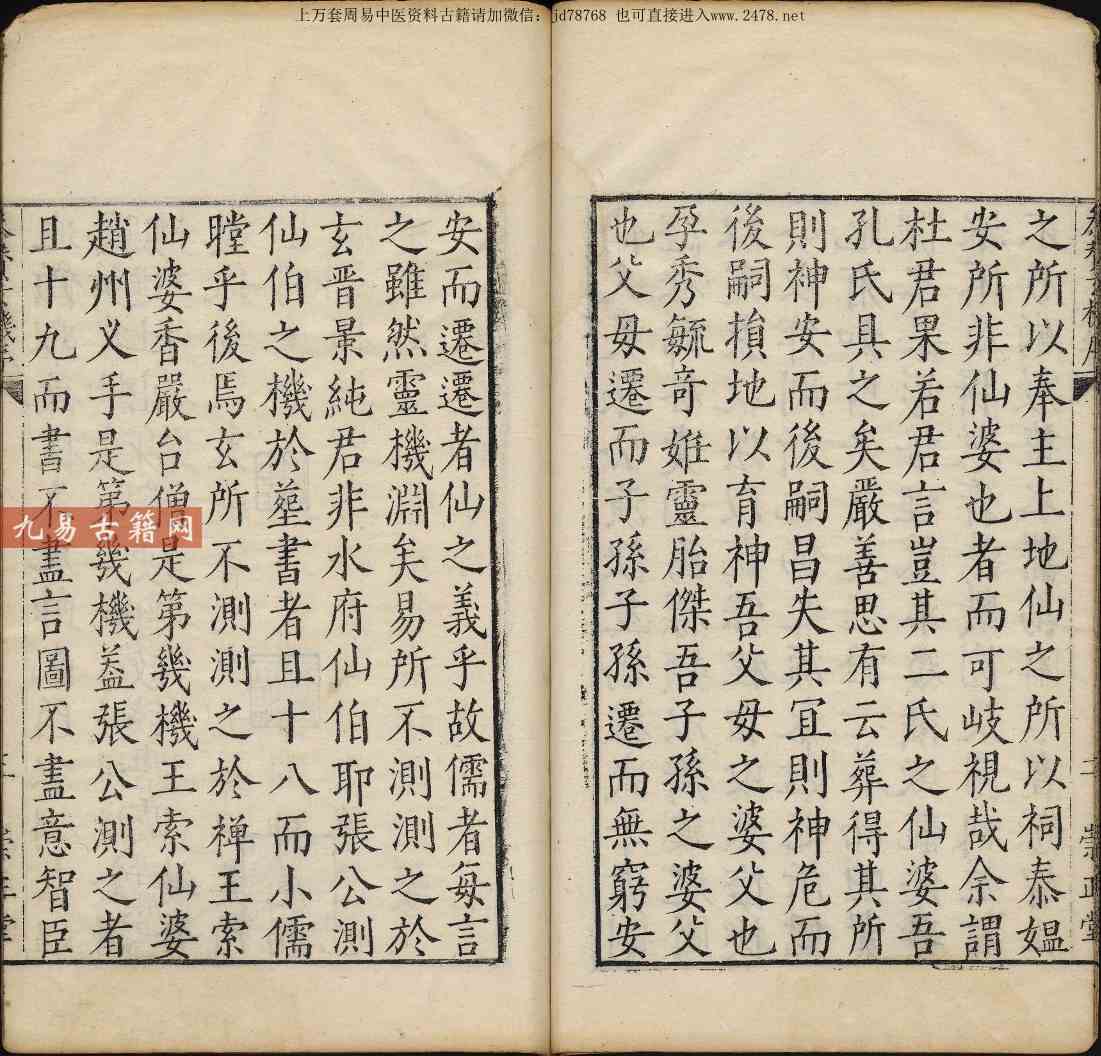 上万套周易中医资料古籍请加微信：jd78768 也可直接进入www.2478.net
之所以奉主上地仙之所以祠泰媼
安所非仙婆也者而可岐視哉余謂
杜君果若君言豈其二氏之仙婆吾
孔氏具之矣嚴善思有云葬得其所
則神安而後嗣昌失其宜則神危而
後嗣損地以育神吾父母之婆父也
孕秀毓奇婎靈胎傑吾子孫之婆父
也父母遷而子孫子孫遷而無窮安
二 崇正堂
安而遷遷者仙之義乎故儒者每言
之雖然靈機淵矣易所不測測之於
玄晉景純君非水府仙伯耶張公測
仙伯之機於塟書者且十八而小儒
瞠乎後焉玄所不測測之於禅王索
仙婆香嚴台僧是第幾機王索仙婆
趙州义手是第幾機盖張公測之者
且十九而書不盡言圖不盡意智臣
九易古籍网